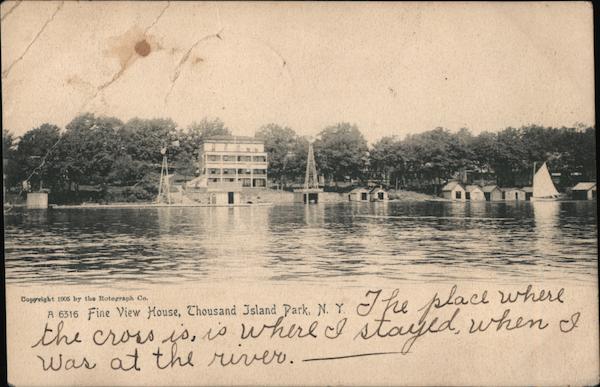 Copyright 1905 by the Rotograph Co.
A 6316 Fine View House, Thousand Island Park, N. Y. The place where
the cross is, is where I stayed, when I
was at the river.